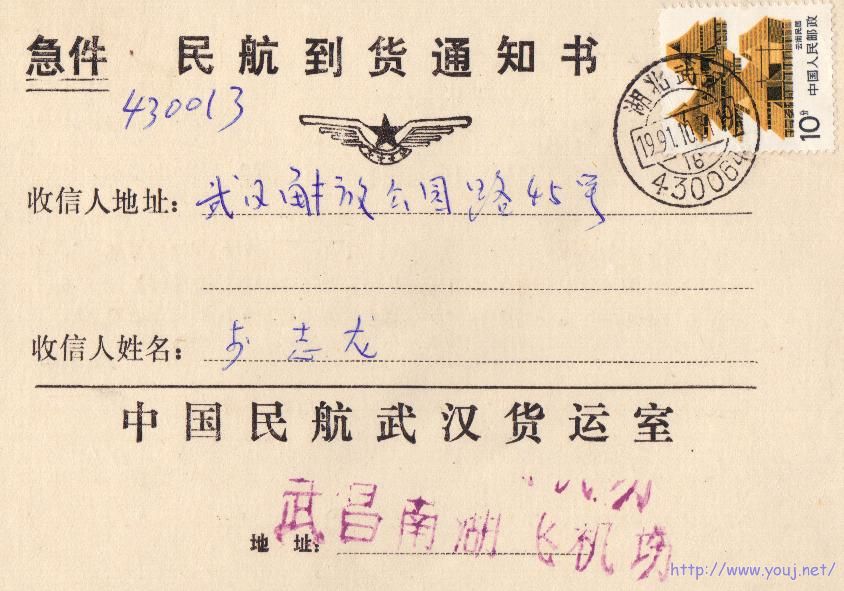 急件 民航到货通知书
云南民居
中国人民邮政
10分
430013
湖北武
1991.10.
16
430064
收信人地址: 武汉解放公园路45号
收信人姓名: 步志龙
中国民航武汉货运室
地 址: 武昌南湖飞机场
http://www.youj.net/